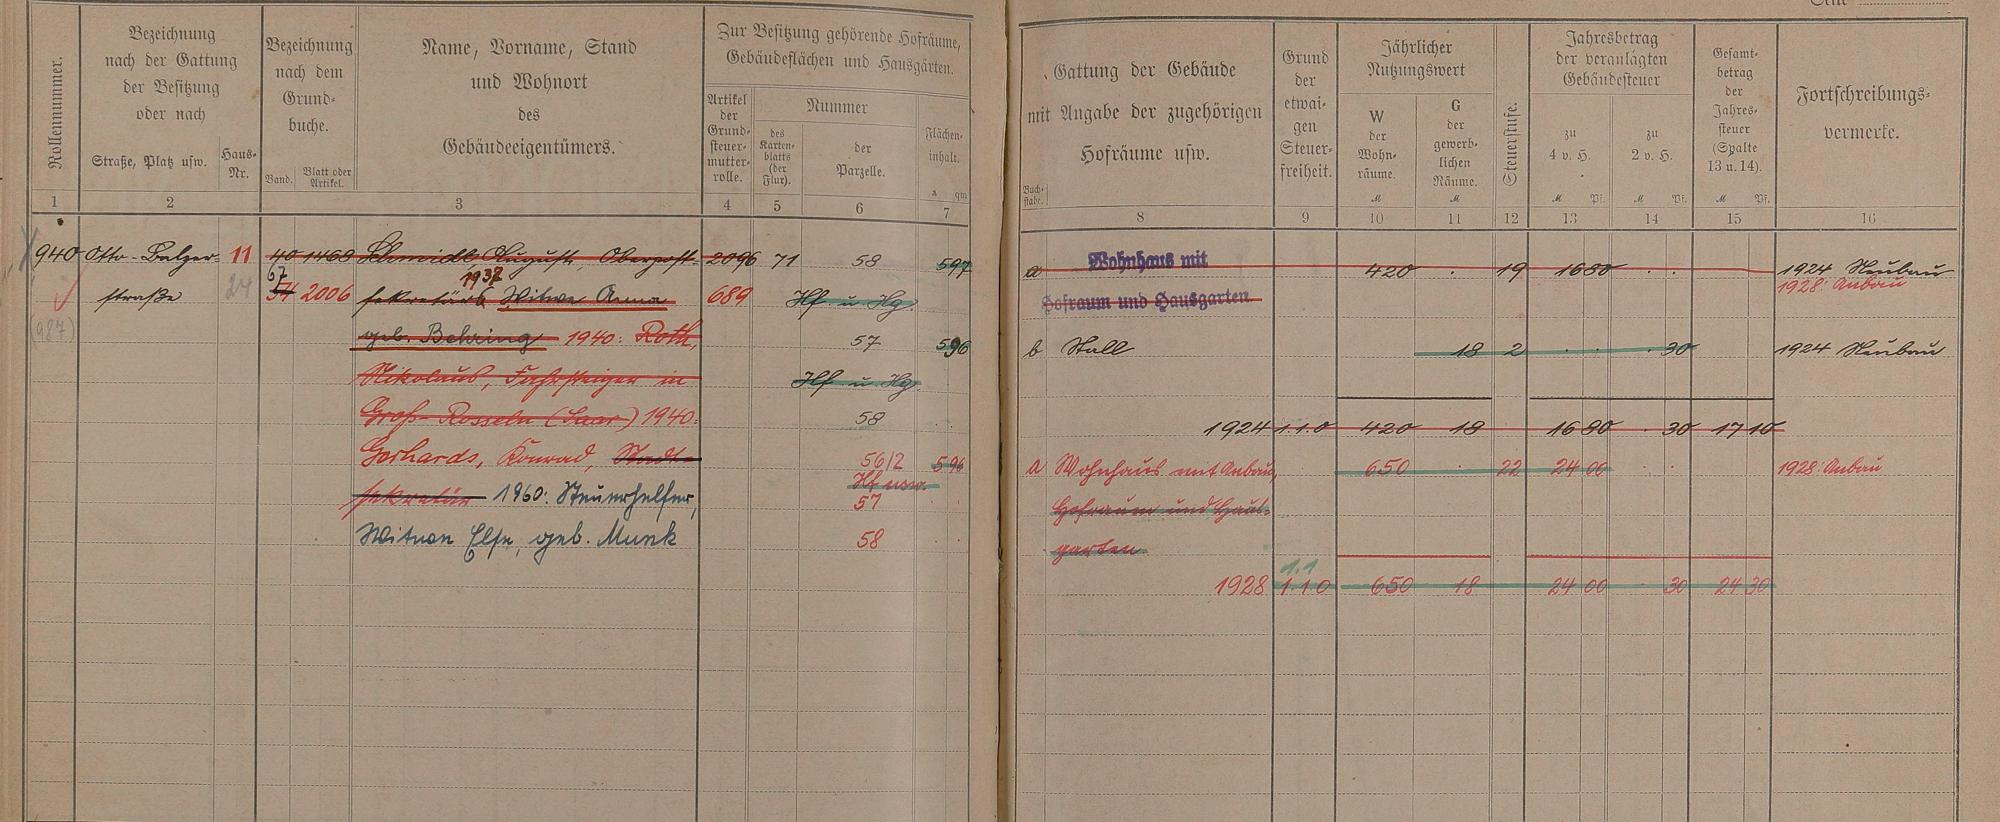 Seite
Rollennummer.
Bezeichnung
nach der Gattung
der Besitzung
oder nach
Straße, Platz usw.
Haus-
Nr.
Bezeichnung
nach dem
Grund-
buche.
Band.
Blatt oder
Artikel.
Name, Vorname, Stand
und Wohnort
des
Gebäudeeigentümers.
Zur Besitzung gehörende Hofräume,
Gebäudeflächen und Hausgärten.
Artikel
der
Grund-
steuer-
mutter-
rolle.
Nummer
des
Karten-
blatts
(der
Flur).
der
Parzelle.
Flächen-
inhalt.
a qm
1 2 3 4 5 6 7
940 Otto-Balzer- 11 40 1468 Schmidt August, Oberpost- 2096 71 58 597
67 1937
straße 24 54 2006 sekretärs Witwe Anna 689 Hf. u. Hg.
(987) geb. Behring 1940: Roth, 57 596
Nikolaus, Fahrsteiger in Hf. u. Hg.
Groß-Rosseln (Saar) 1940: 58
Gerhards, Konrad, Stadt- 56/2 596
Hf usw.
sekretär 1960: Steuerhelfer, 57
Witwe Else, geb. Munk 58
Gattung der Gebäude
mit Angabe der zugehörigen
Hofräume usw.
Buch-
stabe.
Grund
der
etwai-
gen
Steuer-
freiheit.
Jährlicher
Nutzungswert
W
der
Wohn-
räume.
M
G
der
gewerb-
lichen
Räume.
M
Steuerstufe.
Jahresbetrag
der veranlagten
Gebäudesteuer
zu
4 v. H.
M Pf.
zu
2 v. H.
M Pf.
Gesamt-
betrag
der
Jahres-
steuer
(Spalte
13 u. 14).
M Pf.
Fortschreibungs-
vermerke.
8 9 10 11 12 13 14 15 16
a Wohnhaus mit 420 . 19 1680 . . 1924 Neubau
1928: Anbau
Hofraum und Hausgarten
b Stall 18 2 . . . 30 1924 Neubau
1924 1.1.0 420 18 16 80 . 30 17 10
a Wohnhaus mit Anbau, 650 . 22 24 00 . . 1928: Anbau
Hofraum und Haus-
garten
1.1
1928 1.1.0 650 18 24 00 30 24 30